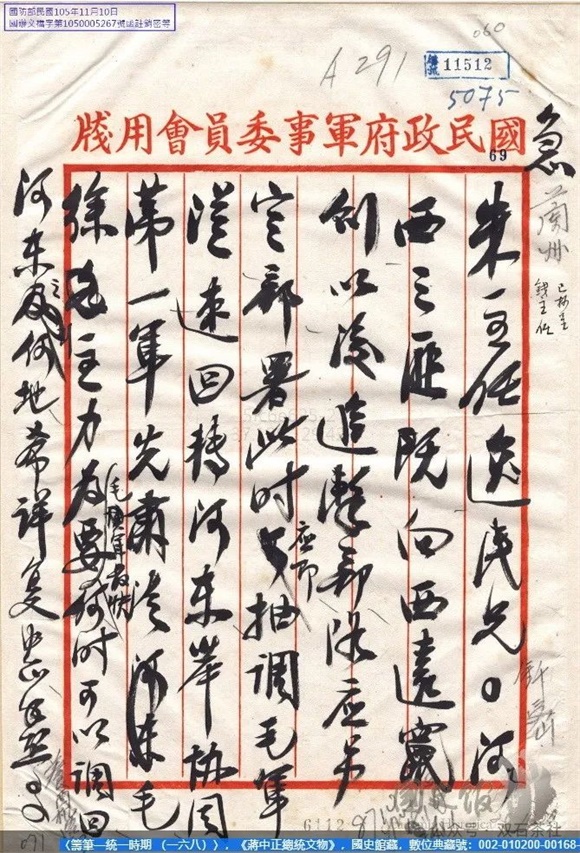 國防部民國105年11月10日
國辦文檔字第1050005267號函註銷密等
060
A 291
11512
5075
國民政府軍事委員會用牋
69
急 蘭州
朱主任逸民兄。河
西之匪既向西遠竄
則以後追擊部隊應另
定部署此時應即抽調毛軍
從速回轉河東岸協同
第一軍先肅清河東毛
徐主力為要毛軍最快何時可以調回
河東及何地希詳复
6112
双石茶社
〈籌筆—統一時期（一六八）〉，《蔣中正總統文物》，國史館藏，數位典藏號：002-010200-00168